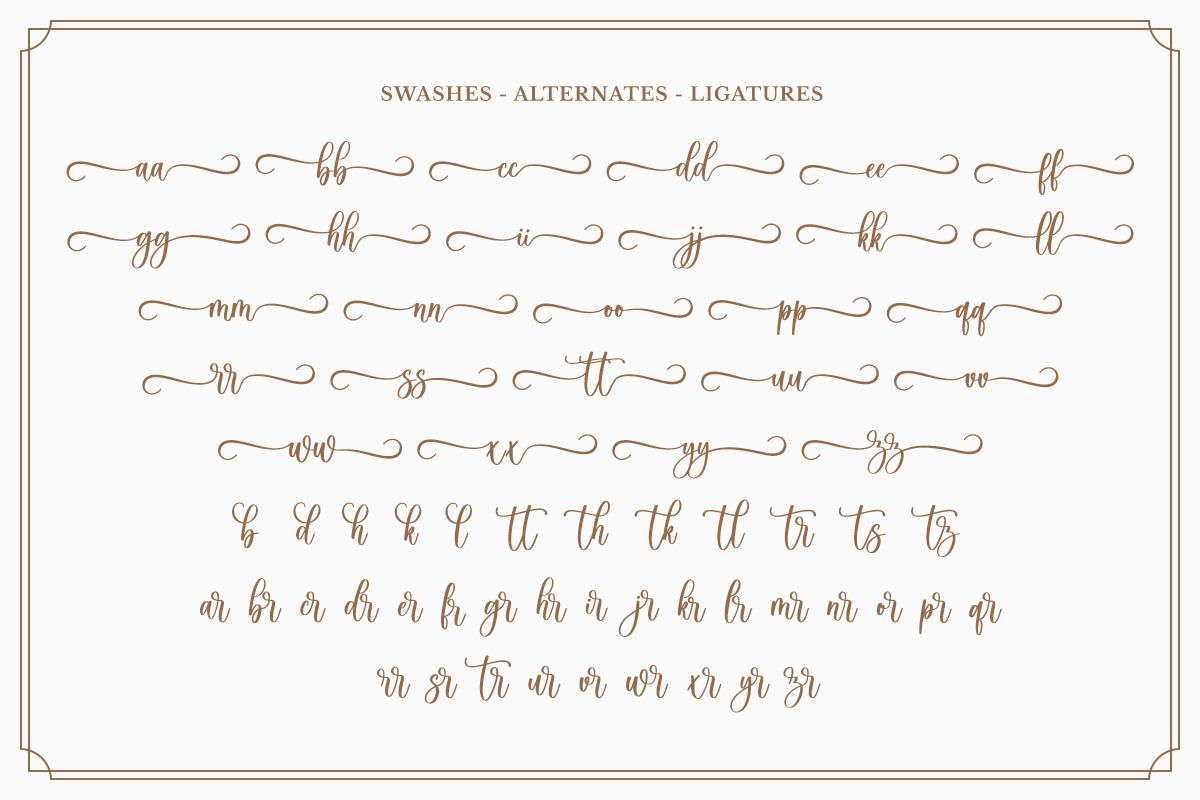 SWASHES - ALTERNATES - LIGATURES
aa bb cc dd ee ff
gg hh ii jj kk ll
mm nn oo pp qq
rr ss tt uu vv
ww xx yy zz
b d h k l tt th tk tl tr ts tz
ar br cr dr er fr gr hr ir jr kr lr mr nr or pr qr
rr sr tr ur vr wr xr yr zr